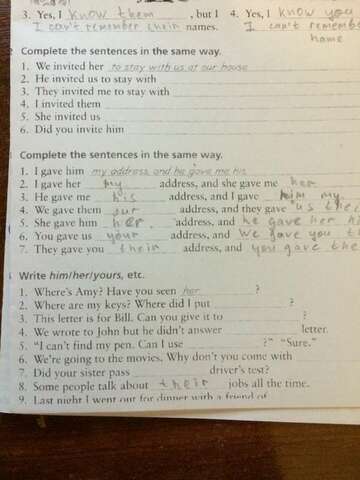 3. Yes, I know them, but I 4. Yes, I know you
I can't remember their names. I can't remembe
name
Complete the sentences in the same way.
1. We invited her to stay with us at our house
2. He invited us to stay with
3. They invited me to stay with
4. I invited them
5. She invited us
6. Did you invite him
Complete the sentences in the same way.
1. I gave him my address, and he gave me his
2. I gave her my address, and she gave me her
3. He gave me his address, and I gave him my
4. We gave them our address, and they gave us thei
5. She gave him her address, and he gave her hi
6. You gave us your address, and We gave you
7. They gave you their address, and you gave the
Write him/her/yours, etc.
1. Where's Amy? Have you seen her ?
2. Where are my keys? Where did I put ?
3. This letter is for Bill. Can you give it to ?
4. We wrote to John but he didn't answer letter.
5. "I can't find my pen. Can I use ?" "Sure."
6. We're going to the movies. Why don't you come with
7. Did your sister pass driver's test?
8. Some people talk about their jobs all the time.
9. Last night I went out for dinner with a friend of